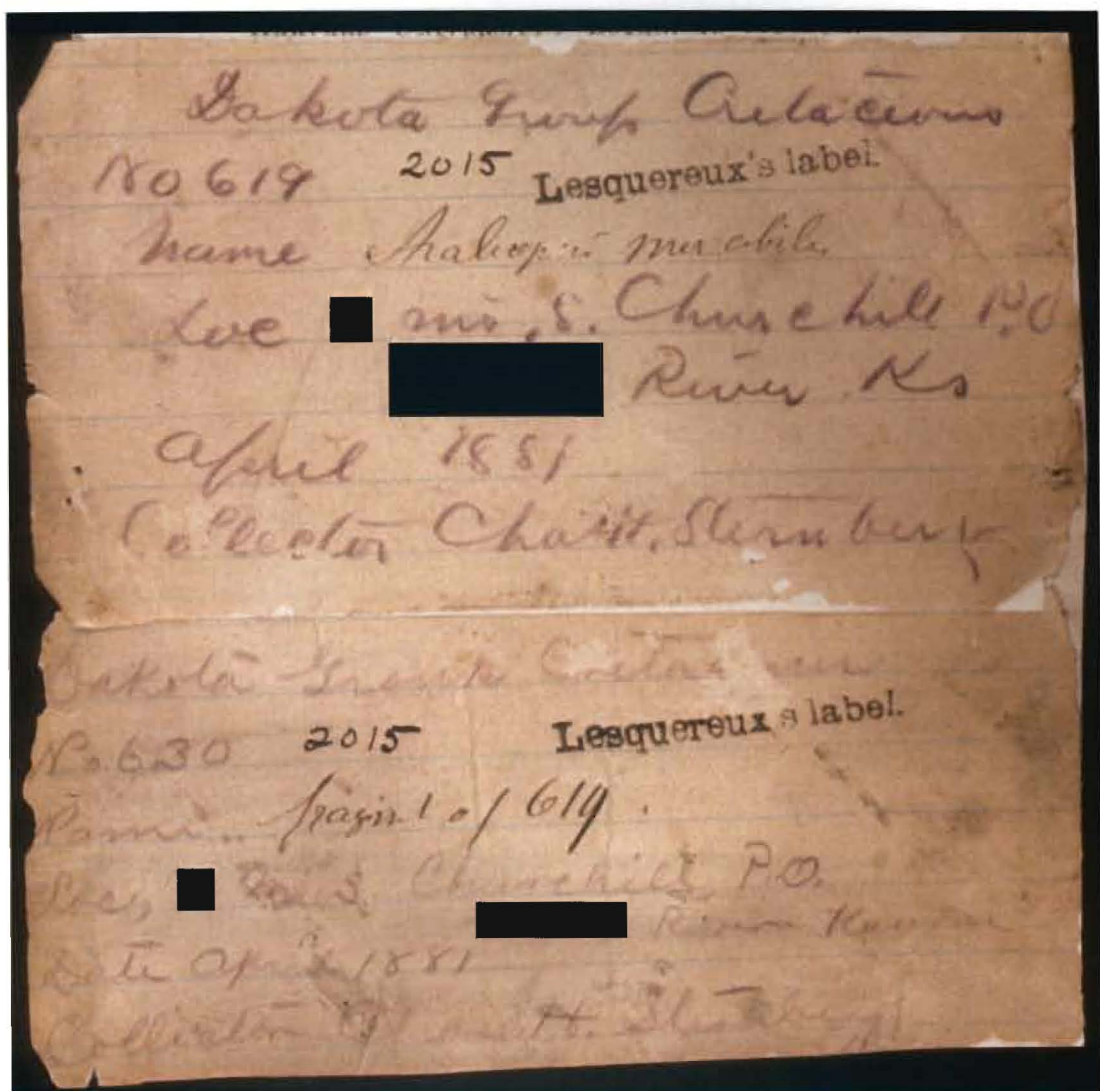 Dakota Group Cretaceous
No 619 2015 Lesquereux's label.
Name mirabilis
Loc mi, S. Churchill P.O
River Ks
April 1881
Collector Chas H. Sternberg
Dakota Group Cretaceous
No. 630 2015 Lesquereux's label.
Name fragm't of 619.
Loc, mi S. Churchill P.O.
River Kansas
Date April 1881
Collector Chas H. Sternberg